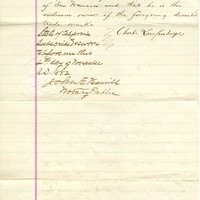 of San Francisco and that he is the
exclusive owner of the foregoing described
trade marks
State of California
Subscribed & sworn
to before me this
day of November
AD 1882
John E. Hamill
Notary Public